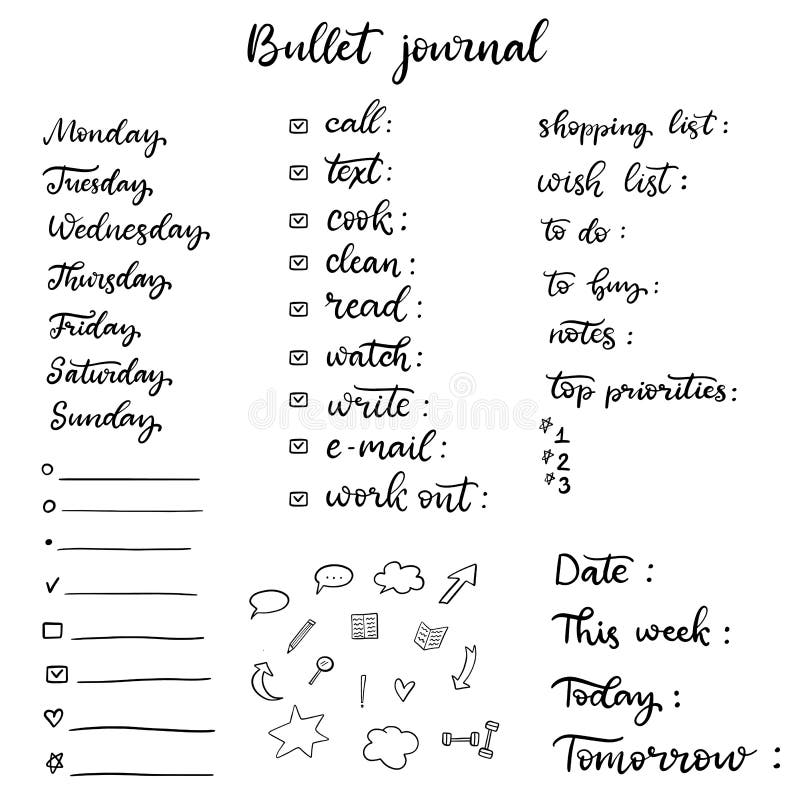 Bullet journal
Monday
Tuesday
Wednesday
Thursday
Friday
Saturday
Sunday
call:
text:
cook:
clean:
read:
watch:
write:
e-mail:
work out:
shopping list:
wish list:
to do:
to buy:
notes:
top priorities:
1
2
3
Date:
This week:
Today:
Tomorrow:
dreamstime